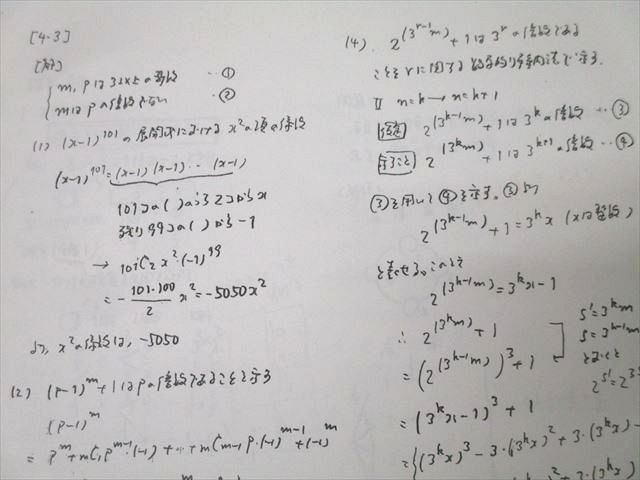 [4・3]
[解]
m, pは3以上の奇数 …①
mはpの倍数でない …②
(1) (x-1)^101の展開式における x^2の項の係数
(x-1)^101 = (x-1)(x-1)…(x-1)
101コの( )から2コがx
残り99コの( )から-1
→ 101C2 x^2・(-1)^99
= - 101・100/2 x^2 = -5050x^2
より, x^2の係数は, -5050
(2) (p-1)^m+1はpの倍数であることを示す
(p-1)^m
= p^m + mC1 p^m-1・(-1) + … + mCm-1 p・(-1)^m-1 + (-1)^m
(4) 2^(3^r-1 m) + 1は3^rの倍数である
ことをrに関する数学的帰納法で示す。
Ⅱ n=k → n=k+1
仮定 2^(3^k-1 m) + 1は3^kの倍数 …③
示すこと 2^(3^k m) + 1は3^k+1の倍数 …④
③を用いて④を示す。③より
2^(3^k-1 m) + 1 = 3^k x (xは整数)
と表せる。このとき
2^(3^k-1 m) = 3^k x - 1
∴ 2^(3^k m) + 1
= (2^(3^k-1 m))^3 + 1
S'=3^k m
S=3^k-1 m
とおくと
= (3^k x - 1)^3 + 1
= {(3^k x)^3 - 3・(3^k x)^2 + 3・(3^k x) -